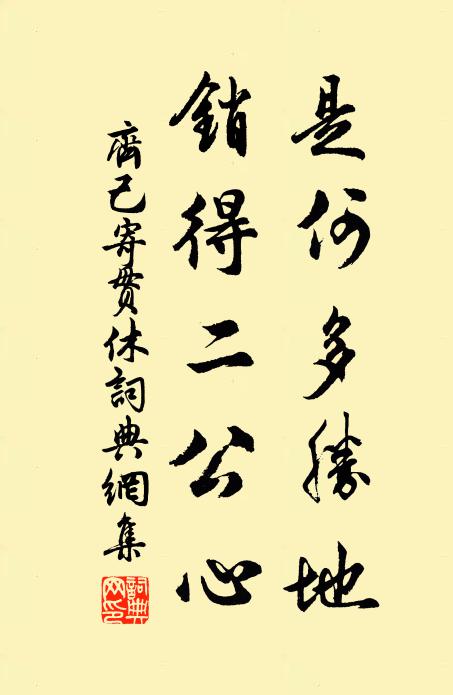 是何多勝地
銷得二公心
齊己寄貫休詞典網集
詞典網印